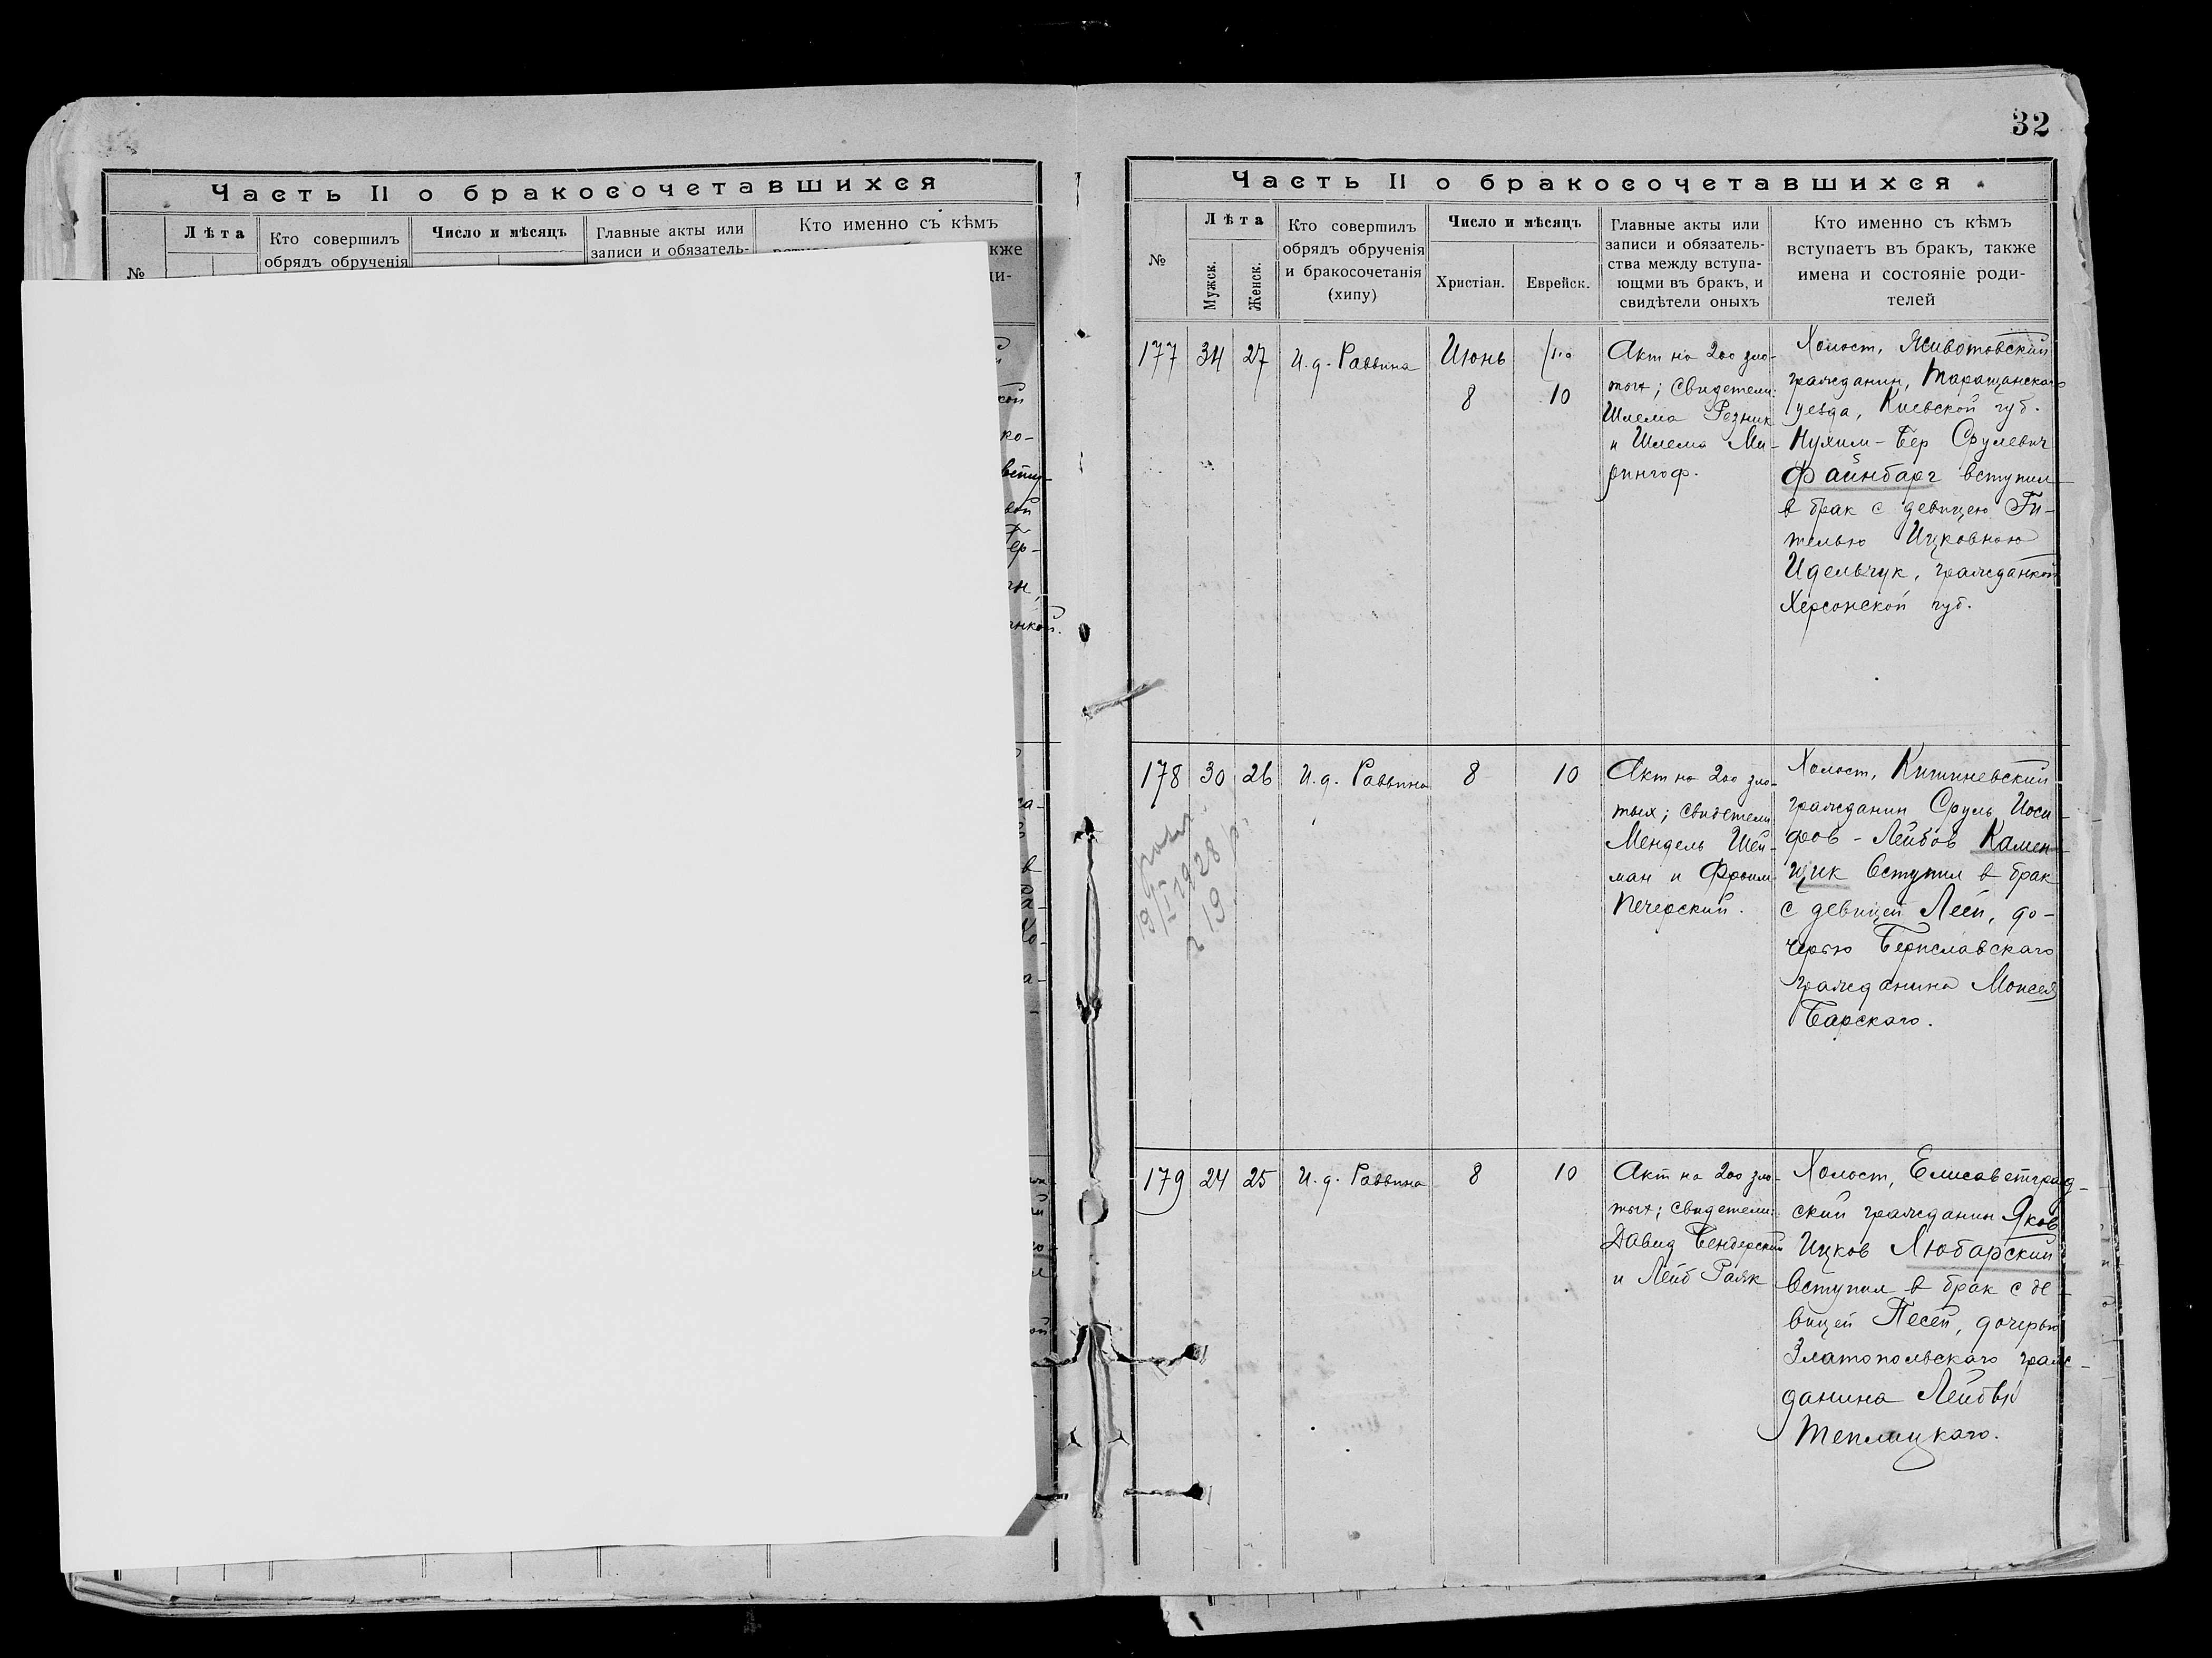 Часть II о бракосочетавшихся
Лѣта
Кто совершилъ
обрядъ обрученія
Число и мѣсяцъ
Главные акты или
записи и обязатель-
Кто именно съ кѣмъ
№
32
Часть II о бракосочетавшихся
№
Лѣта
Мужск.
Женск.
Кто совершилъ
обрядъ обрученія
и бракосочетанія
(хипу)
Число и мѣсяцъ
Христіан.
Еврейск.
Главные акты или
записи и обязатель-
ства между вступа-
ющми въ бракъ, и
свидѣтели оныхъ
Кто именно съ кѣмъ
вступаетъ въ бракъ, также
имена и состояніе роди-
телей
177
34
27
И.д. Раввина
Июнь
8
10
Акт на 200 зло-
тых; Свидетели:
Шлема Резник
и Шлема Ми-
рингоф.
Холост, Животовский
гражданин, Таращанскаго
уезда, Киевской губ.
Нухим-Бер Срулевич
Файнбарг вступил
в брак с девицею Ги-
телью Ицковною
Идельчук, гражданкой
Херсонской губ.
178
30
26
И.д. Раввина
8
10
Акт на 200 зло-
тых; свидетели
Мендель Шей-
ман и Фроим
Печерский.
Холост, Кишиневский
гражданин Сруль Иоси-
фов-Лейбов Камен-
щик вступил в брак
с девицей Леей, до-
черью Бериславскаго
гражданина Моисея
Барскаго.
19/I 1928 р.
19
179
24
25
И.д. Раввина
8
10
Акт на 200 зло-
тых; свидетели:
Давид Бендерский
и Лейб Раяк
Холост, Елисаветград-
ский гражданин Яков
Ицков Любарский
вступил в брак с де-
вицей Песей, дочерью
Златопольскаго граж-
данина Лейбы
Теплицкаго.